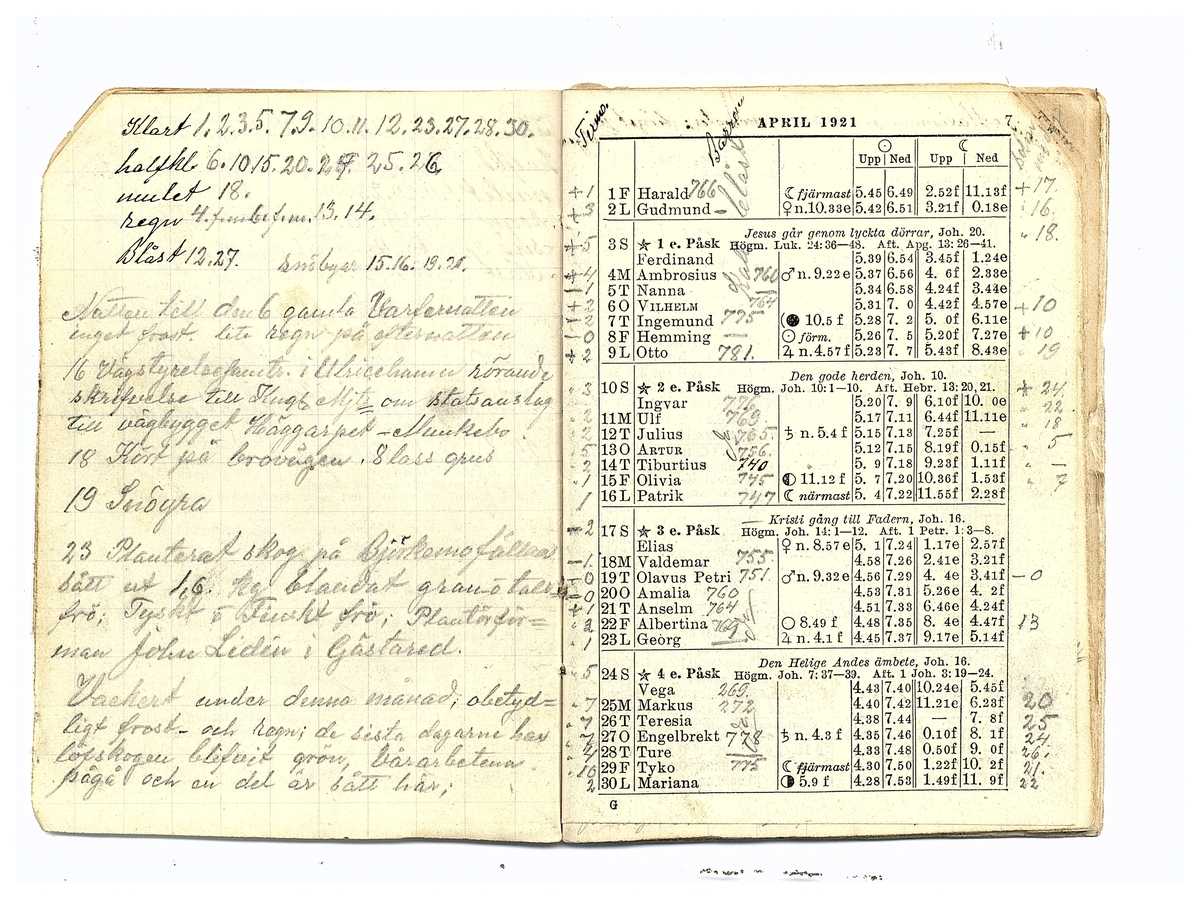 Klart 1. 2. 3. 5. 7. 9. 10. 11. 12. 23. 27. 28. 30.
halfkl 6. 10 15. 20. 24. 25. 26
mulet 18.
regn 4. f.m. 6 f.m. 13. 14.
Blåst 12. 27. snöbyar 15. 16. 19. 21.
Natten till den 6 gamla Varfernatten
inget frost. lite regn på efternatten
16 Vägstyrelsesamtr. i Ulricehamn rörande
skrifvelse till Kngl Mjts om statsanslag
till vägbygget Häggarpet - Munkebo
18 Kört på brovägen. 8 lass grus
19 Snöyra
23 Planterat skog på Björkemofällan
sått ut 1,6 kg blandat gran o tall
frö; Tyskt o Finskt frö; Plantörför=
man John Lidén i Gästared.
Vackert under denna månad; obetyd=
ligt frost- och regn; de sista dagarne har
löfskogen blifvit grön, Vårarbetena
pågå och en del är sått här;
Barom
APRIL 1921 7
☉ ☾
Upp Ned Upp Ned
+1 1 F Harald 766 ☾ fjärmast 5.45 6.49 2.52f 11.13f +17.
+3 2 L Gudmund ♀ n.10.33e 5.42 6.51 3.21f 0.18e 16.
Jesus går genom lyckta dörrar, Joh. 20.
+5 3 S ★ 1 e. Påsk Högm. Luk. 24: 36—48. Aft. Apg. 13: 26—41. 18.
Ferdinand 5.39 6.54 3.45f 1.24e
+4 4 M Ambrosius 760 ♂ n. 9.22 e 5.37 6.56 4. 6f 2.33e
1 5 T Nanna 5.34 6.58 4.24f 3.44e
+2 6 O VILHELM 764 5.31 7. 0 4.42f 4.57e +10
7 T Ingemund 775 10.5 f 5.28 7. 2 5. 0f 6.11e
0 8 F Hemming ☉ förm. 5.26 7. 5 5.20f 7.27e +10
+2 9 L Otto 781. ♃ n. 4.57 f 5.23 7. 7 5.43f 8.43e 19
Den gode herden, Joh. 10.
3 10 S ★ 2 e. Påsk Högm. Joh. 10: 1—10. Aft. Hebr. 13: 20, 21. + 24
Ingvar 776 5.20 7. 9 6.10f 10. 0e 22
2 11 M Ulf 769 5.17 7.11 6.44f 11.11e 18
2 12 T Julius 765. ♄ n. 5.4 f 5.15 7.13 7.25f — 5
5 13 O ARTUR 756. 5.12 7.15 8.19f 0.15f
2 14 T Tiburtius 740 5. 9 7.18 9.23f 1.11f —
1 15 F Olivia 745 ◐ 11.12 f 5. 7 7.20 10.36f 1.53f 7
1 16 L Patrik 747 ☾ närmast 5. 4 7.22 11.55f 2.28f
Kristi gång till Fadern, Joh. 16.
-2 17 S ★ 3 e. Påsk Högm. Joh. 14: 1—12. Aft. 1 Petr. 1: 3—8.
Elias ♀ n. 8.57 e 5. 1 7.24 1.17e 2.57f
-1. 18 M Valdemar 755. 4.58 7.26 2.41e 3.21f
-0 19 T Olavus Petri 751. ♂ n. 9.32 e 4.56 7.29 4. 4e 3.41f -0
-0 20 O Amalia 760 4.53 7.31 5.26e 4. 2f
+1 21 T Anselm 764 4.51 7.33 6.46e 4.24f
2 22 F Albertina 769 ○ 8.49 f 4.48 7.35 8. 4e 4.47f 13
1 23 L Georg ♃ n. 4.1 f 4.45 7.37 9.17e 5.14f
Den Helige Andes ämbete, Joh. 16.
5 24 S ★ 4 e. Påsk Högm. Joh. 7: 37—39. Aft. 1 Joh. 3: 19—24.
Vega 269. 4.43 7.40 10.24e 5.45f
7 25 M Markus 272 4.40 7.42 11.21e 6.23f 20
7 26 T Teresia 4.38 7.44 — 7. 8f 25
7 27 O Engelbrekt 778 ♄ n. 4.3 f 4.35 7.46 0.10f 8. 1f 24
4 28 T Ture 4.33 7.48 0.50f 9. 0f 26.
10 29 F Tyko 775 ☾ fjärmast 4.30 7.50 1.22f 10. 2f 21.
2 30 L Mariana ◑ 5.9 f 4.28 7.53 1.49f 11. 9f 22
G